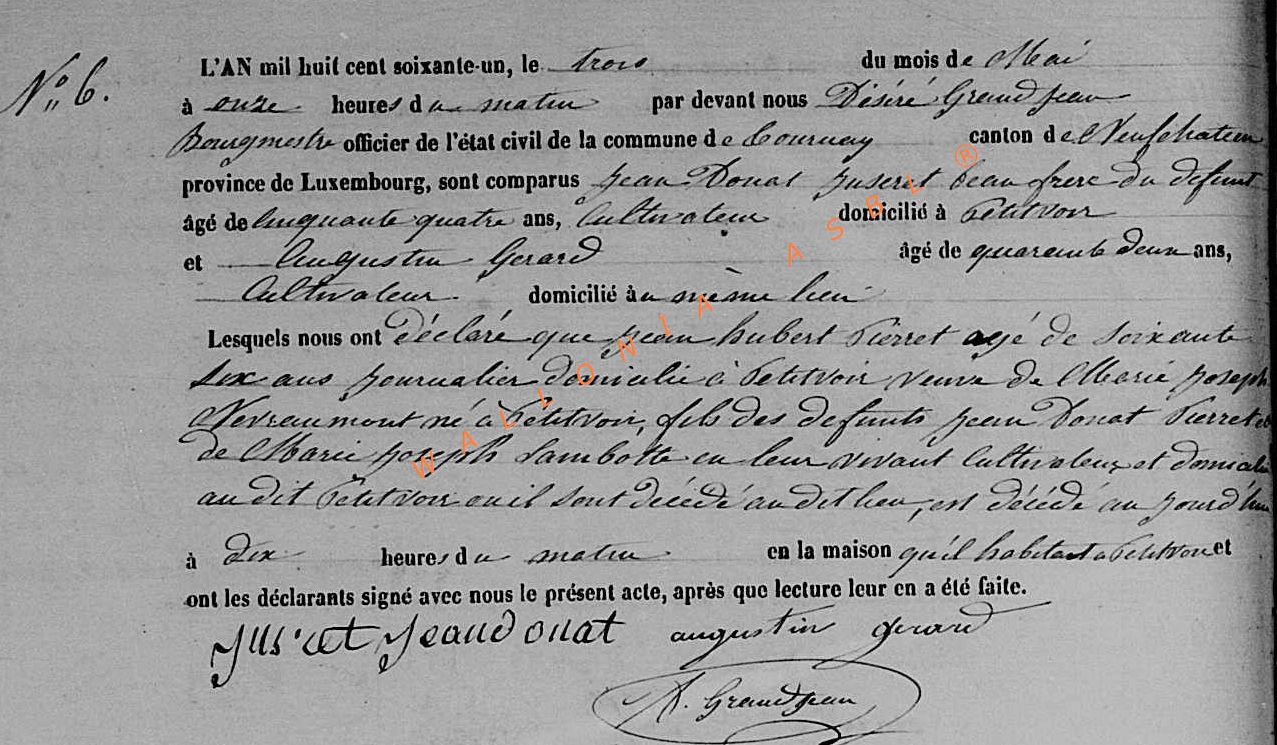 N° 6.
L'AN mil huit cent soixante-un, le trois du mois de Mai
à onze heures du matin par devant nous Désiré Grandjean
Bourgmestre officier de l'état civil de la commune de Tournay canton de Neufchateau
province de Luxembourg, sont comparus Jean Donat Juseret beau frere du defunt
âgé de cinquante quatre ans, Cultivateur domicilié à Petitvoir
et Augustin Gerard âgé de quarante deux ans,
Cultivateur domicilié au même lieu
Lesquels nous ont déclaré que Jean hubert Pierret agé de soixante
six ans journalier domicilié à Petitvoir veuve de Marie Joseph
Nevraumont né à Petitvoir, fils des defunts Jean Donat Pierret et
de Marie Joseph Lambotte en leur vivant Cultivateur et domicilié
au dit Petitvoir ou il sont décédé au dit lieu, est décédé au jourd'hui
à dix heures du matin en la maison qu'il habitait a Petitvoir et
ont les déclarants signé avec nous le présent acte, après que lecture leur en a été faite.
Jus'ret Jean donat augustin gerard
Grandjean
WALLONIA ASBL ®